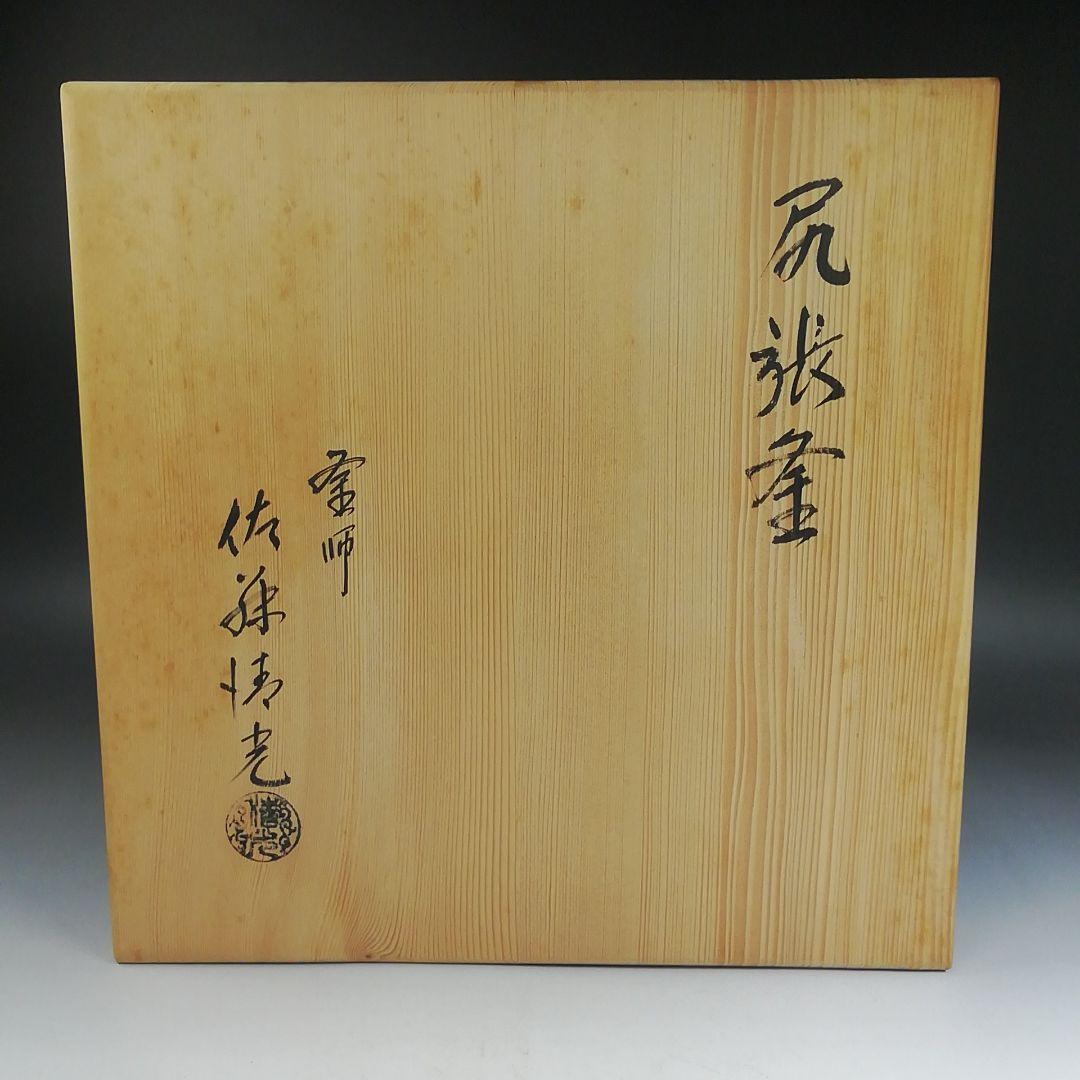 尻張釜
釜師
佐藤清光